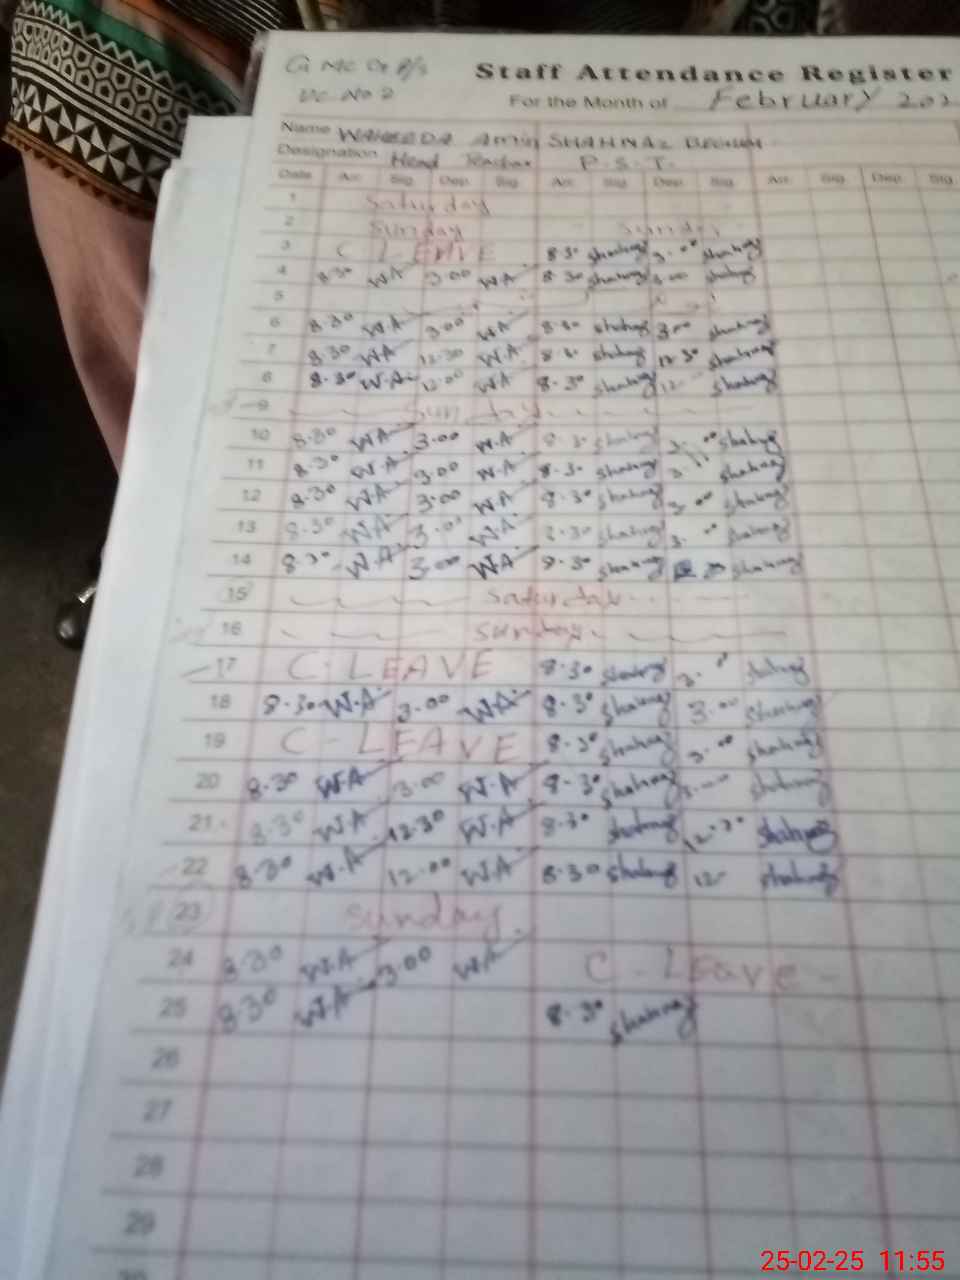 Staff Attendance Register
UC. No 2
For the Month of February 202
Name WAHEEDA Amin SHAHNAZ BEGHUM
Designation Head Teacher P.S.T.
Date Arr. Sig. Dep. Sig. Arr. Sig. Dep. Sig. Arr. Sig. Dep. Sig.
1 Saturday
2 Sunday Sunday
3 C LEAVE 8.30 Shahnaz 3.00 Shahnaz
4 8.30 WA 3.00 WA 8.30 Shahnaz 3.00 Shahnaz
5
6 8.30 WA 3.00 WA 8.30 Shahnaz 3.00 Shahnaz
7 8.30 WA 12.30 WA 8.30 Shahnaz 12.30 Shahnaz
8 8.30 W.A 12.00 WA 8.30 Shahnaz 12 Shahnaz
9 Sunday
10 8.30 WA 3.00 W.A 8.30 Shahnaz 3.00 Shahnaz
11 8.30 W.A 3.00 W.A 8.30 Shahnaz 3. Shahnaz
12 8.30 W.A 3.00 W.A 8.30 Shahnaz 3.00 Shahnaz
13 8.30 W.A 3.00 WA 8.30 Shahnaz 3. Shahnaz
14 8.30 W.A 3.00 WA 8.30 Shahnaz Shahnaz
15 Saturday
16 Sunday
17 C-LEAVE 8.30 Shahnaz 3. Shahnaz
18 8.30 W.A 3.00 W.A 8.30 Shahnaz 3.00 Shahnaz
19 C-LEAVE 8.30 Shahnaz 3.00 Shahnaz
20 8.30 WA 3.00 W.A 8.30 Shahnaz 3. Shahnaz
21 8.30 W.A 12.30 W.A 8.30 Shahnaz 12.30 Shahnaz
22 8.30 W.A 12.00 WA 8.30 Shahnaz 12 Shahnaz
23 Sunday
24 8.30 W.A 3.00 WA C-Leave
25 8.30 WA 8.30 Shahnaz
26
27
28
29
30
25-02-25 11:55